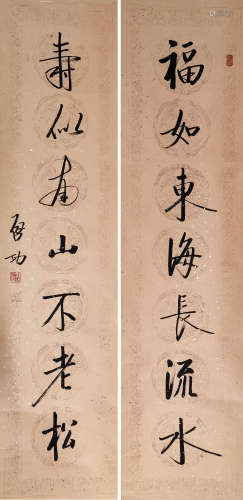 福如東海長流水
壽似南山不老松
啓功